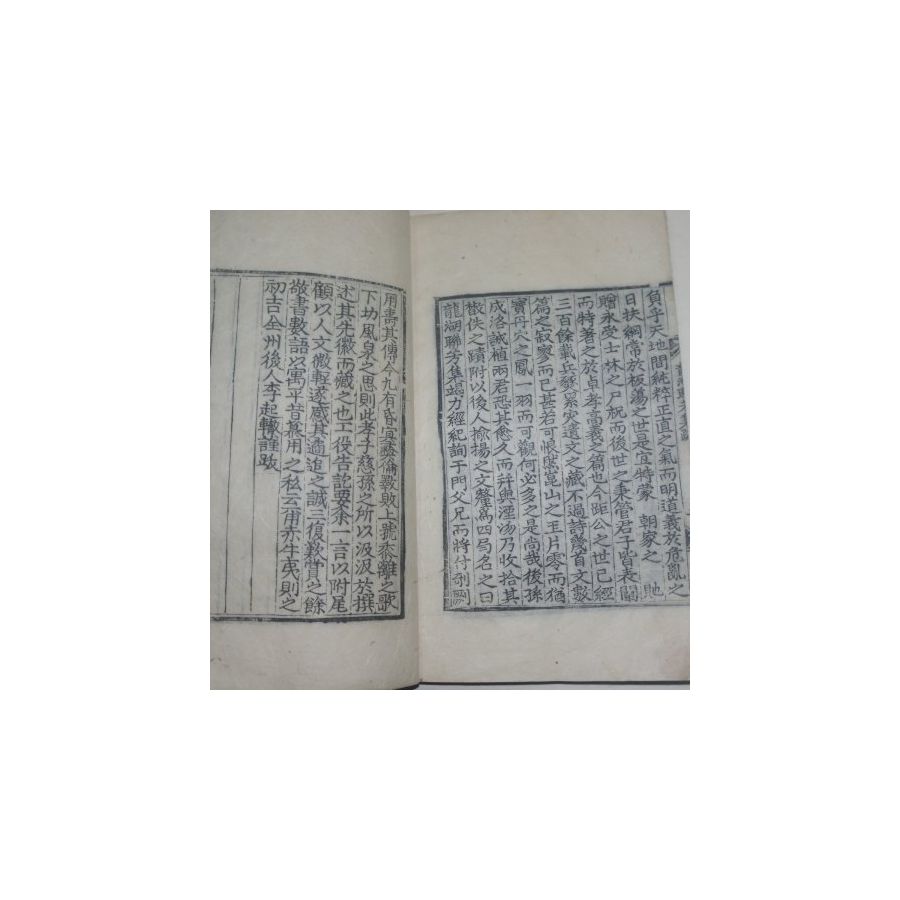 負乎天地間純粹正直之氣而明道義於危亂之
日扶綱常於板蕩之世是宜特蒙 朝家之 貤
贈永受士林之尸祝而後世之秉管君子皆表闡
而特著之於卓孝高義之篇也今距公之世已經
三百餘載兵燹累灾遺文之藏不過詩幾首文數
篇之寂寥而已甚若可恨然崑山之玉片零而猶
寶丹穴之鳳一羽而可觀何必多之是尚哉後孫
成洛誠植雨君恐其愈久而幷與湮沕乃收拾其
散佚之蹟附以後人揄揚之文釐爲四局名之曰
龍湖聯芳集竭力經紀詢于門父兄而將付剞劂
用壽其傳今九有昏宜彛倫斁敗上號黍離之歌
下切風泉之思則此孝子慈孫之所以汲汲於撰
述其先徽而藏之也工役告訖要余一言以附尾
顧以人文微輕遂感其遹追之誠三復歎賞之餘
敬書數語以寓平昔慕用之私云甫赤牛夷則之
初吉全州後人李起轍謹跋